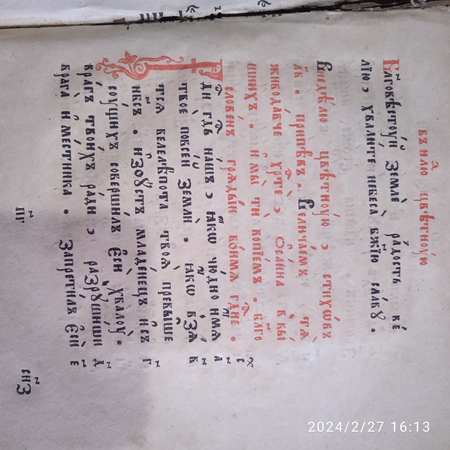 въ нлю цвѣтнꙋю
Блговѣствꙋй земле радость ве
лїю, хвалите небеса бжїю славꙋ.
Внедѣлю цвѣтнꙋю, стихѡвъ
припѣвъ. Величаемъ тѧ
живодавче хрте, Осанна в вы
шнихъ. и мы ти вопїемъ. блго
словенъ грѧдыи во имѧ гдне.
Ги гдь нашъ, ꙗкѡ чюдно имѧ
твое повсеи земли. ꙗкѡ взѧ
тсѧ велелѣпота твоѧ превыше
нбсъ. изоустъ младенецъ исъ
соущихъ совершилъ еси хвалоу.
врагъ твоихъ ради, разрꙋшиши
врага и местника. Запретилъ еси
снз
2024/2/27 16:13